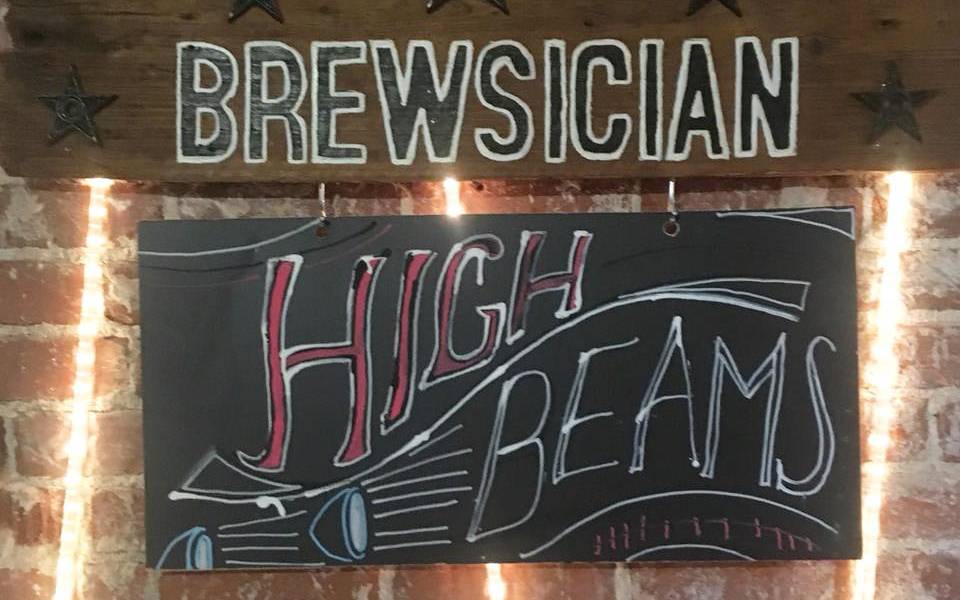 BREWSICIAN
HIGH
BEAMS